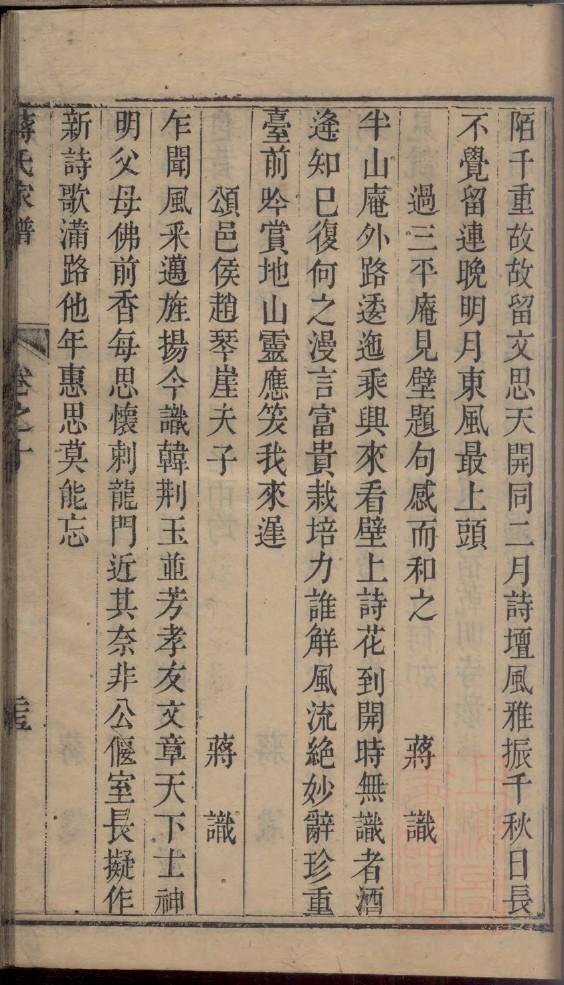 陌千重故故留文思天開同二月詩壇風雅振千秋日長
不覺留連晚明月東風最上頭
過三平庵見壁題句感而和之 蔣識
半山庵外路逶迤乘興來看壁上詩花到開時無識者酒
逢知已復何之漫言富貴栽培力誰觧風流絶妙辭珍重
臺前吟賞地山靈應笑我來遲
頌邑侯趙琴崖夫子 蔣識
乍聞風釆邁旌揚今識韓荆玉並芳孝友文章天下士神
明父母佛前香每思懷刺龍門近其奈非公偃室長擬作
新詩歌滿路他年惠思莫能忘
蔣氏家譜 卷之十